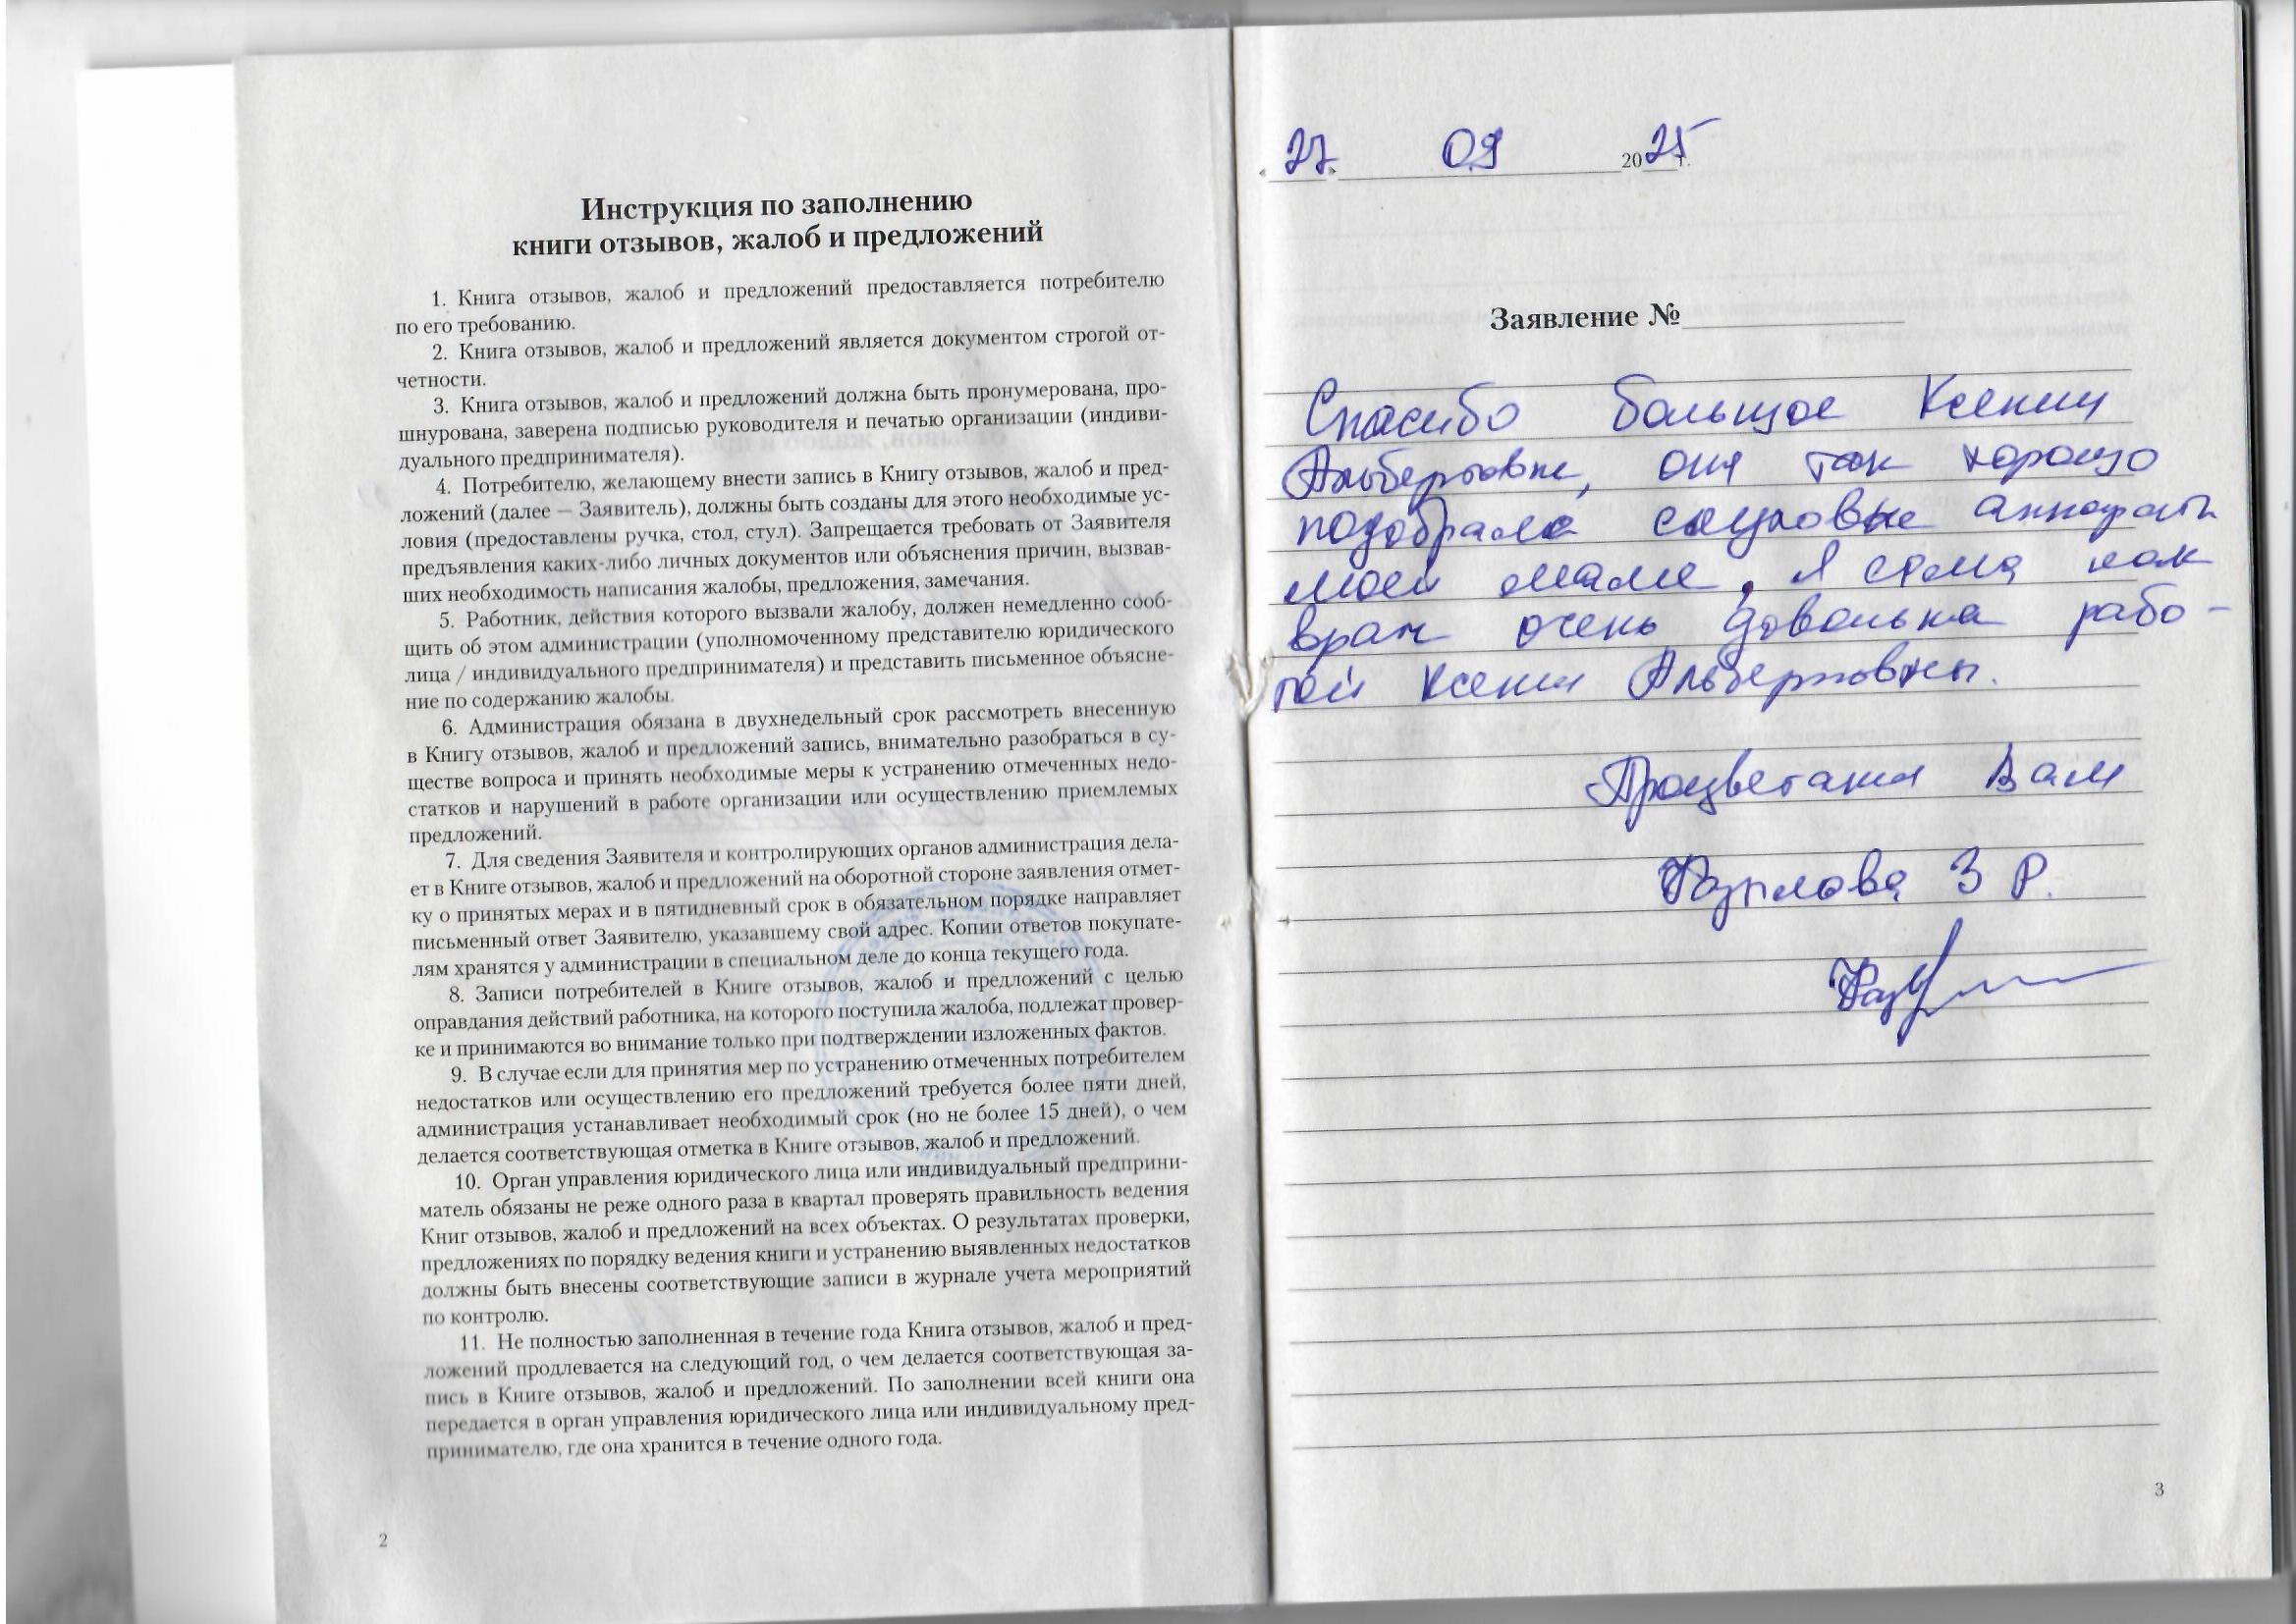 Инструкция по заполнению
книги отзывов, жалоб и предложений
1. Книга отзывов, жалоб и предложений предоставляется потребителю
по его требованию.
2. Книга отзывов, жалоб и предложений является документом строгой от-
четности.
3. Книга отзывов, жалоб и предложений должна быть пронумерована, про-
шнурована, заверена подписью руководителя и печатью организации (индиви-
дуального предпринимателя).
4. Потребителю, желающему внести запись в Книгу отзывов, жалоб и пред-
ложений (далее — Заявитель), должны быть созданы для этого необходимые ус-
ловия (предоставлены ручка, стол, стул). Запрещается требовать от Заявителя
предъявления каких-либо личных документов или объяснения причин, вызвав-
ших необходимость написания жалобы, предложения, замечания.
5. Работник, действия которого вызвали жалобу, должен немедленно сооб-
щить об этом администрации (уполномоченному представителю юридического
лица / индивидуального предпринимателя) и представить письменное объясне-
ние по содержанию жалобы.
6. Администрация обязана в двухнедельный срок рассмотреть внесенную
в Книгу отзывов, жалоб и предложений запись, внимательно разобраться в су-
ществе вопроса и принять необходимые меры к устранению отмеченных недо-
статков и нарушений в работе организации или осуществлению приемлемых
предложений.
7. Для сведения Заявителя и контролирующих органов администрация дела-
ет в Книге отзывов, жалоб и предложений на оборотной стороне заявления отмет-
ку о принятых мерах и в пятидневный срок в обязательном порядке направляет
письменный ответ Заявителю, указавшему свой адрес. Копии ответов покупате-
лям хранятся у администрации в специальном деле до конца текущего года.
8. Записи потребителей в Книге отзывов, жалоб и предложений с целью
оправдания действий работника, на которого поступила жалоба, подлежат провер-
ке и принимаются во внимание только при подтверждении изложенных фактов.
9. В случае если для принятия мер по устранению отмеченных потребителем
недостатков или осуществлению его предложений требуется более пяти дней,
администрация устанавливает необходимый срок (но не более 15 дней), о чем
делается соответствующая отметка в Книге отзывов, жалоб и предложений.
10. Орган управления юридического лица или индивидуальный предприни-
матель обязаны не реже одного раза в квартал проверять правильность ведения
Книг отзывов, жалоб и предложений на всех объектах. О результатах проверки,
предложениях по порядку ведения книги и устранению выявленных недостатков
должны быть внесены соответствующие записи в журнале учета мероприятий
по контролю.
11. Не полностью заполненная в течение года Книга отзывов, жалоб и пред-
ложений продлевается на следующий год, о чем делается соответствующая за-
пись в Книге отзывов, жалоб и предложений. По заполнении всей книги она
передается в орган управления юридического лица или индивидуальному пред-
принимателю, где она хранится в течение одного года.
2
«27» 09 2025 г.
Заявление №
Спасибо большое Ксении
Альбертовне, она так хорошо
подобрала слуховые аппараты
моей маме. Я сама как
врач очень довольна рабо-
той Ксении Альбертовны.
Процветания Вам
З Р.
3